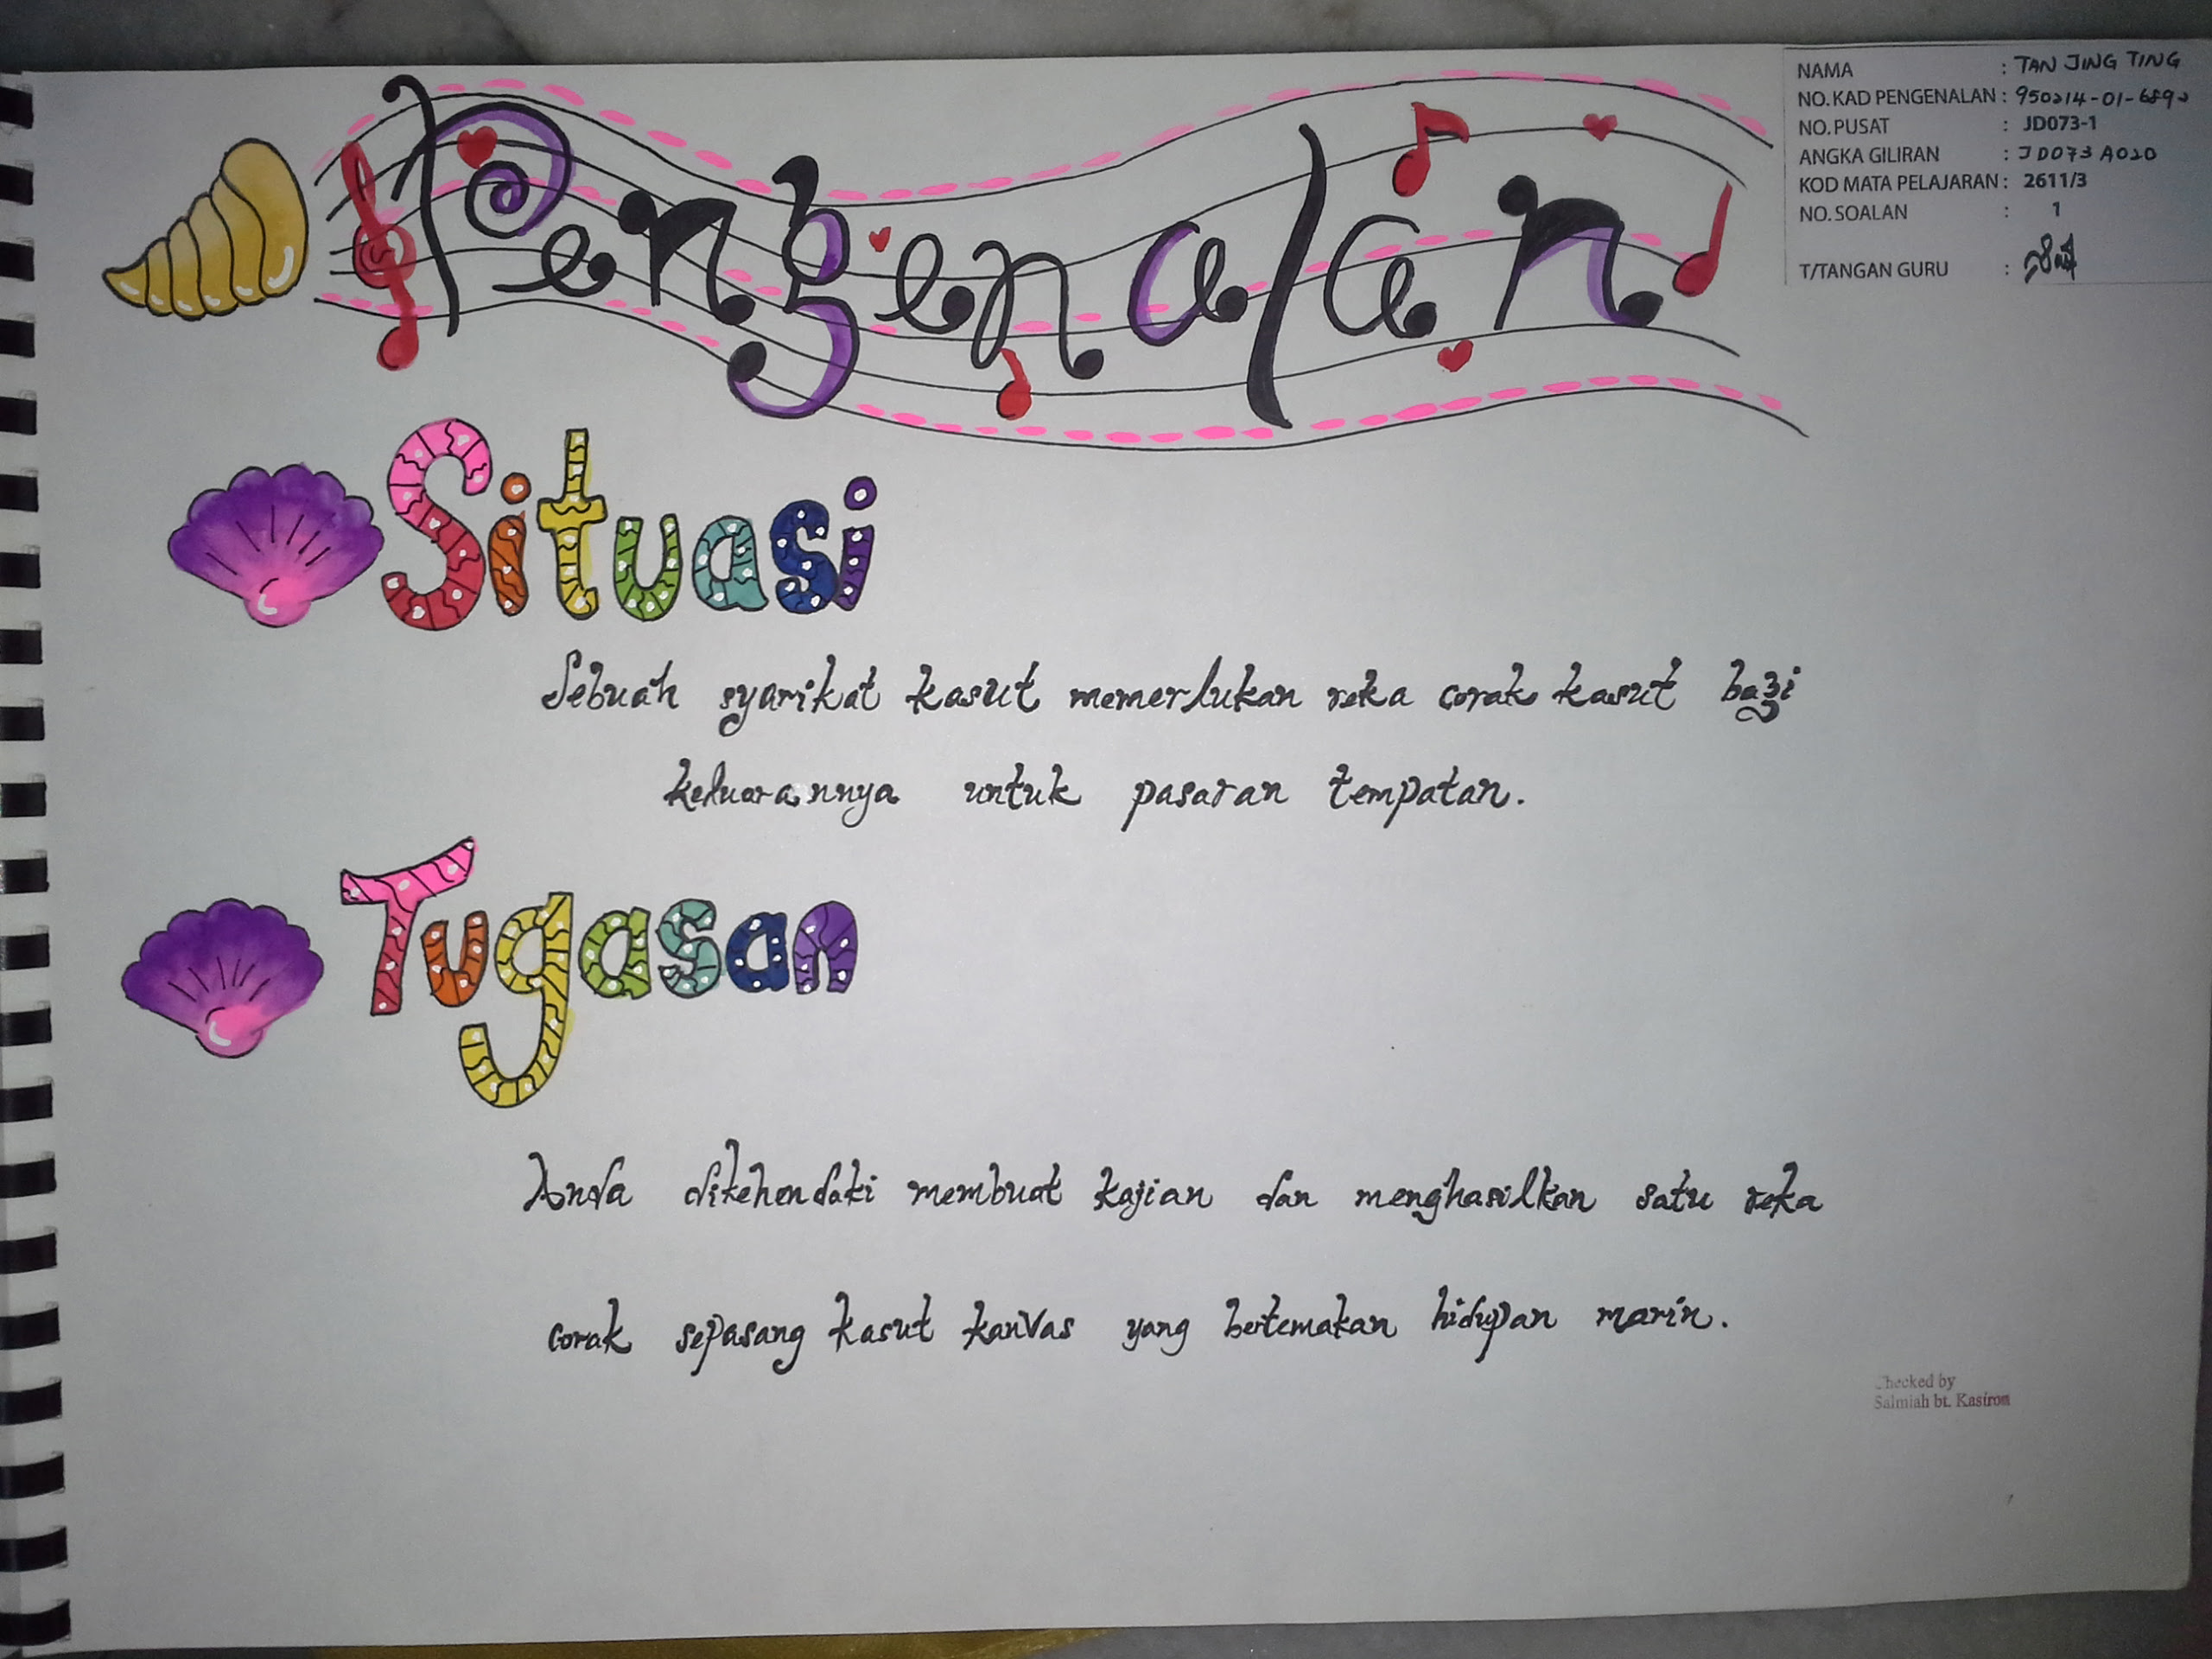 Pengenalan
NAMA : TAN JING TING
NO. KAD PENGENALAN : 950214-01-6892
NO. PUSAT : JD073-1
ANGKA GILIRAN : JD073A020
KOD MATA PELAJARAN : 2611/3
NO. SOALAN : 1
T/TANGAN GURU :
Situasi
Sebuah syarikat kasut memerlukan reka corak kasut bagi
keluarannya untuk pasaran tempatan.
Tugasan
Anda dikehendaki membuat kajian dan menghasilkan satu reka
corak sepasang kasut kanvas yang bertemakan hidupan marin.
Checked by
Salmiah bt. Kasirom